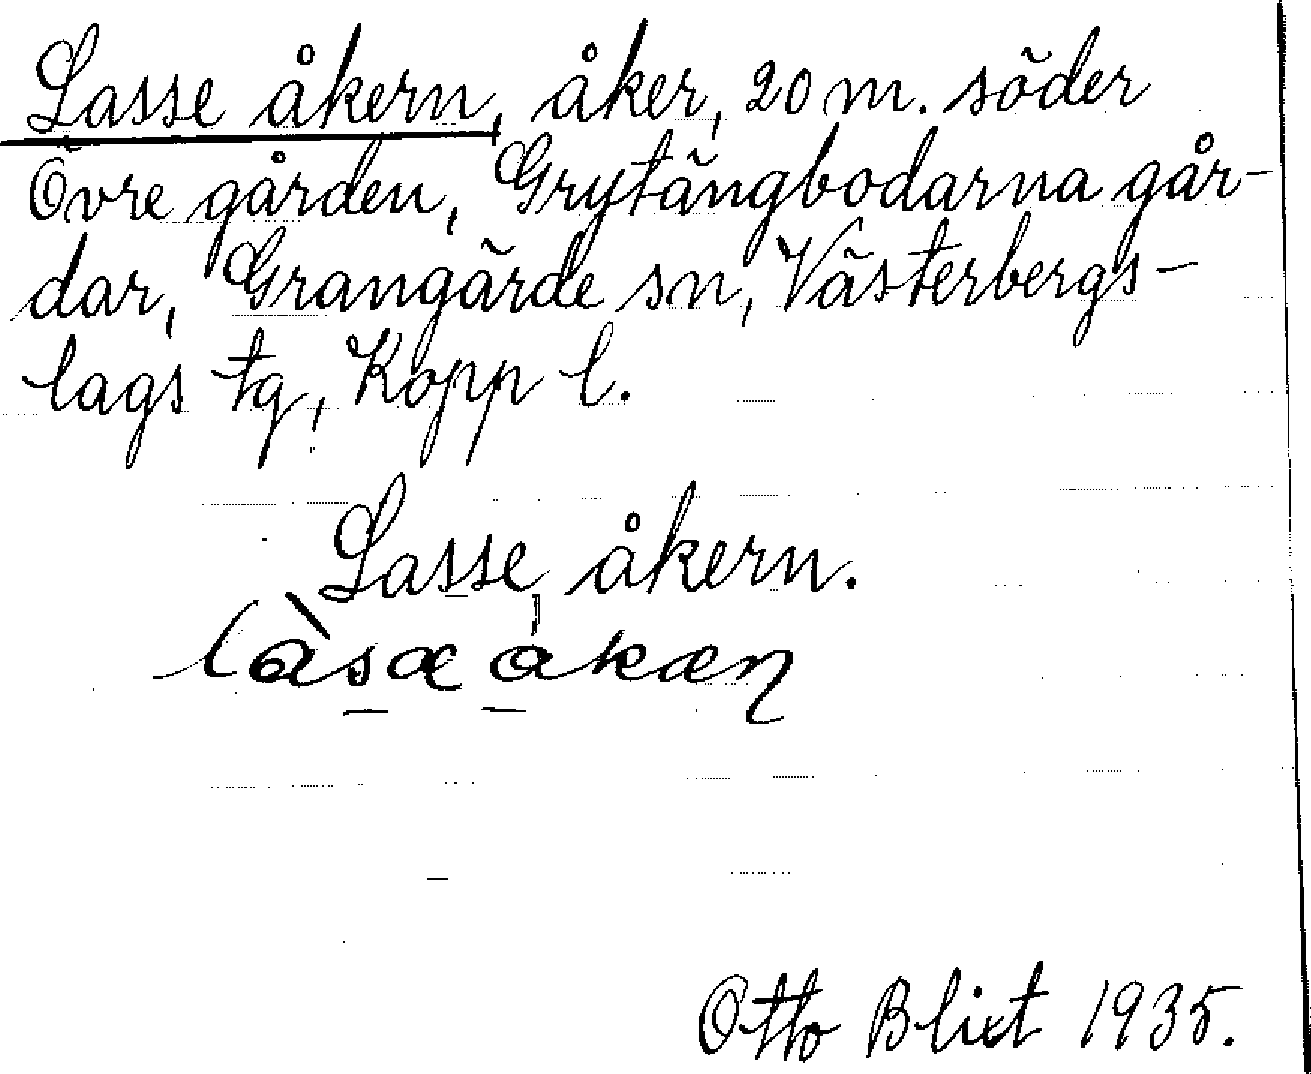 Lasse åkern, åker, 20 m. söder
Övre gården, Grytängbodarna går-
dar, Grangärde sn, Västerbergs-
lags tg, Kopp l.
Lasse åkern.
làsæ åkæn
Otto Blixt 1935.